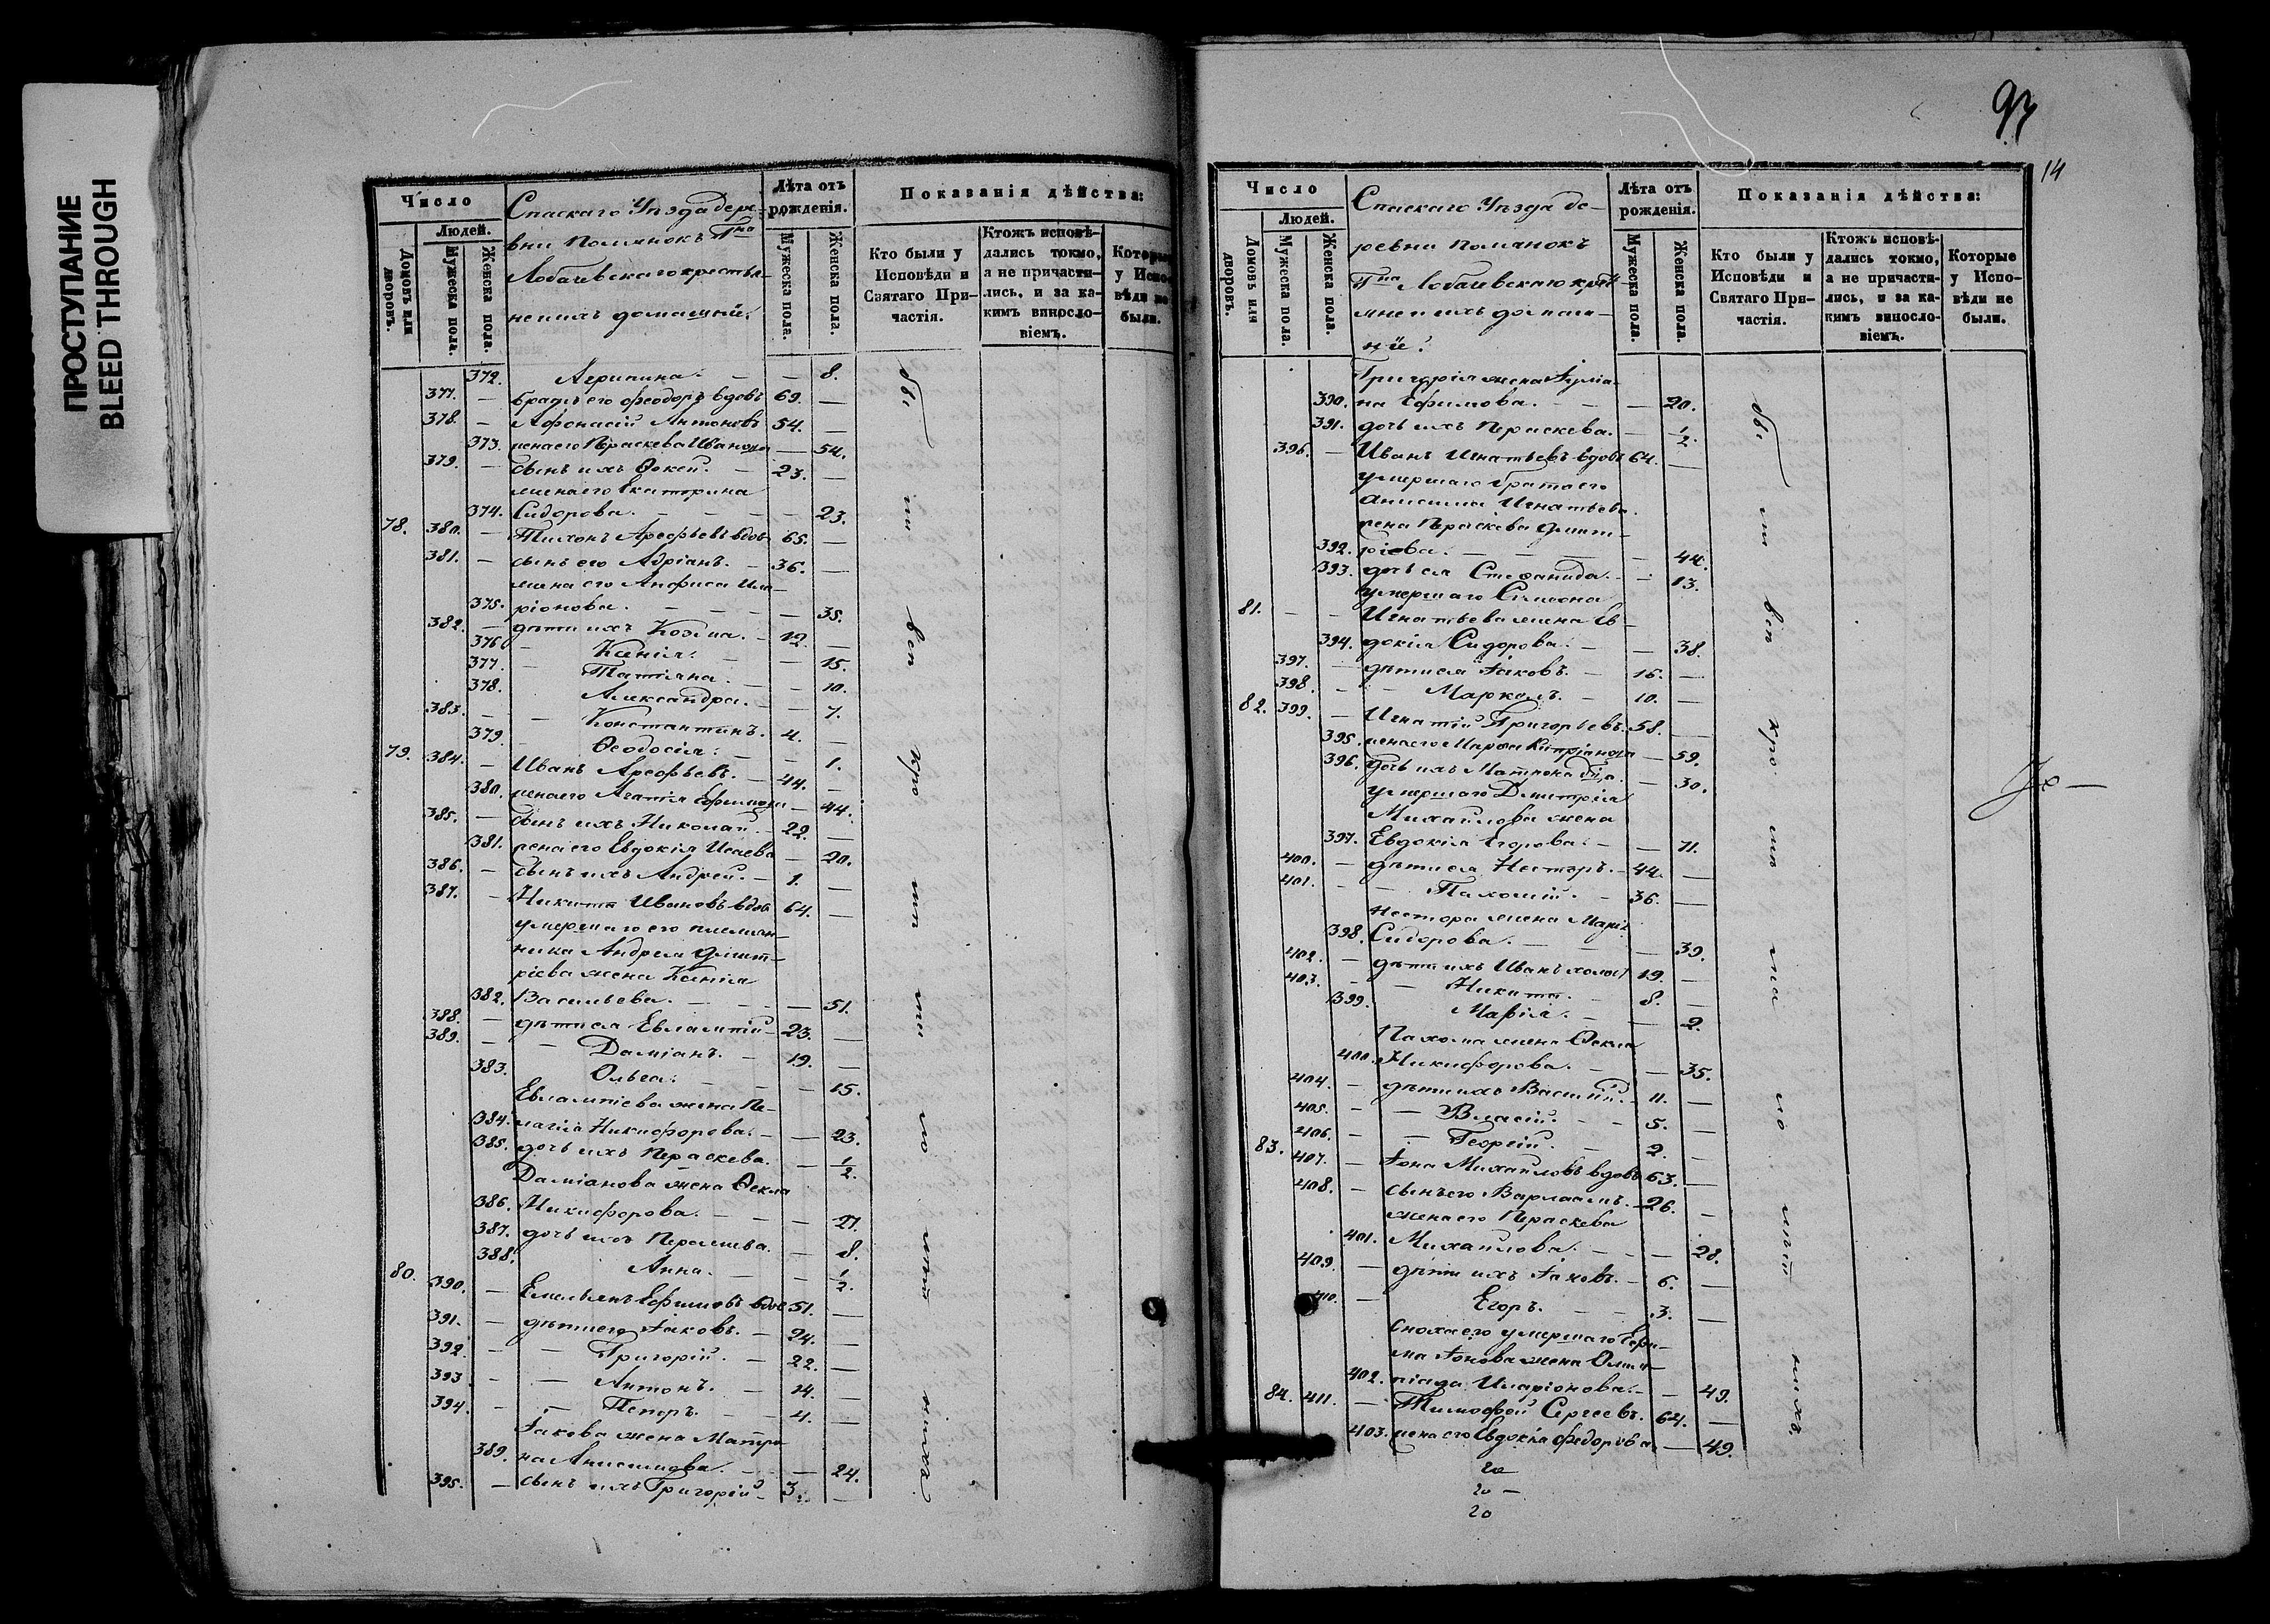 ПРОСТУПАНИЕ
BLEED THROUGH
Число
Людей.
Домовъ или дворовъ.
Мужеска пола.
Женска пола.
Спаскаго Уѣзда дере-
вни Полянокъ Гна
Лобачевскаго крестья-
не и ихъ домашнiи.
Лѣта отъ рожденія.
Мужеска пола.
Женска пола.
Показанія дѣйства:
Кто были у Исповѣди и Святаго Причастія.
Ктожъ исповѣдались токмо, а не причастились, и за какимъ винословіемъ.
Которые у Исповѣди не были.
372. Агрипина. — — 8.
377. — братъ его Феодоръ вдовъ 69. —
378. — Афонасій Антоновъ 54. —
373. жена его Параскева Иванова — 54.
379. — сынъ ихъ Фокей. — 23. —
жена его Екатерина
374. Сидорова. — — — 23.
78. 380. — Тихонъ Арефьевъ вдов 65. —
381. — сынъ его Адріанъ. — 36. —
жена его Анфиса Ила-
375. ріонова. — — — 35.
382. — дѣти ихъ Козма. — 12. —
376 — Ксенія. — — 15.
377. — Татіяна. — — 10.
378. Александра. — — 7.
383. — — Константинъ. 4. —
379. — Ѳеодосія. — — 1.
79. 384. — Иванъ Арефьевъ. — 44. —
380. жена его Агапія Ефимова — 44.
385. — сынъ ихъ Николай. — 22. —
381. жена его Евдокія Исаева — 20.
386. — сынъ ихъ Андрей. — 1. —
387. — Никита Ивановъ вдов 64. —
умершаго его племян-
ника Андрея Дмит-
ріева жена Ксенія
382. Васильева. — — — 51.
388. — дѣти ея Евлампій — 23. —
389. — — Даміанъ. — 19. —
383. Ольга. — — — 15.
Евлампіева жена Пе-
384. лагія Никифорова. — — 23.
385. дочь ихъ Параскева. — 1/2.
Даміанова жена Ѳекла
386. Никифорова. — — — 27.
387. дочь ихъ Пераскева. — 8.
388. Анна. — — 1/2.
80. 390. — Емельянъ Ефимовъ вдов 51. —
391. — дѣти его Іаковъ. — 24. —
392. — — Григорій. — 22. —
393. — — Антонъ. — 14. —
394. — — Петръ. — 4. —
Іакова жена Матро-
389. на Анисимова. — — 24.
395. — сынъ ихъ Григорій — 3. —
14
Число
Людей.
Домовъ или дворовъ.
Мужеска пола.
Женска пола.
Спаскаго Уѣзда де-
ревни Полянокъ
Гна Лобачевскаго крестья-
не и ихъ домаш-
нiе.
Лѣта отъ рожденія.
Мужеска пола.
Женска пола.
Показанія дѣйства:
Кто были у Исповѣди и Святаго Причастія.
Ктожъ исповѣдались токмо, а не причастились, и за какимъ винословіемъ.
Которые у Исповѣди не были.
Григорія жена Іуліа-
390. на Ефимова. — — 20.
391. дочь ихъ Пераскева. — 1/2.
396. — Иванъ Игнатьевъ вдовъ 64. —
умершаго брата его
Анисима Игнатьева
жена Параскева Дмит-
392. ріева. — — — 44.
393. дочь ея Стефанида. — 13.
умершаго Симеона
81. — — Игнатьева жена Ев-
394. докія Сидорова. — — 38.
397. — дѣти ея Іаковъ. — 16. —
398. — — Маркелъ. — 10. —
82. 399. — Игнатій Григорьевъ. 58. —
395. жена его Марфа Кипріянова — 59.
396. дочь ихъ Матрона — 30.
умершаго Дмитрія
Михайлова жена
397. Евдокія Егорова. — — 71.
400. — дѣти ея Несторъ. — 44. —
401. — — Пахомій. — 36. —
Нестора жена Марія
398. Сидорова. — — — 39.
402. — дѣти ихъ Иванъ холост 19. —
403. — — Никита. — 8. —
399. Марія. — — 2.
Пахома жена Ѳекла
400. Никифорова. — — 35.
404. — дѣти ихъ Василій. — 11. —
405. — — Власій. — — 5. —
406. — — Георгій. — 2. —
83. 407. — Іона Михайловъ вдовъ 63. —
408. — сынъ его Варлаамъ. — 26. —
жена его Пераскева
401. Михайлова. — — — 28.
409. — дѣти ихъ Іаковъ. — 6. —
410. — Егоръ. — — 3. —
сноха его умершаго Ефи-
ма Іонова жена Олим-
402. піада Иларіонова. — — 49.
84. 411. — Тимофей Сергеевъ. 64. —
403. жена его Евдокія Федорова — 49.
20
20 —
20